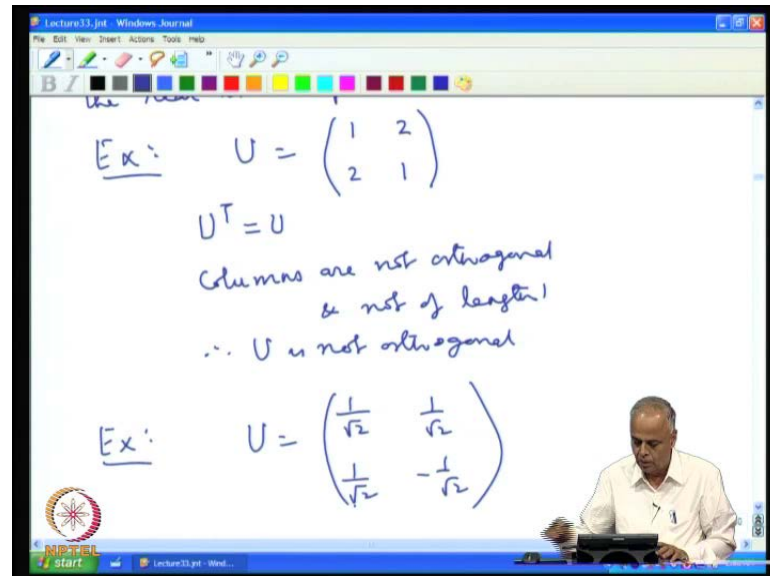 Lecture33.jnt - Windows Journal
File Edit View Insert Actions Tools Help
B I
the
Ex: U = ( 1 2
2 1 )
U^T = U
Columns are not orthogonal
& not of length 1
∴ U is not orthogonal
Ex: U = ( 1/√2 1/√2
1/√2 -1/√2 )
NPTEL
start Lecture33.jnt - Wind...